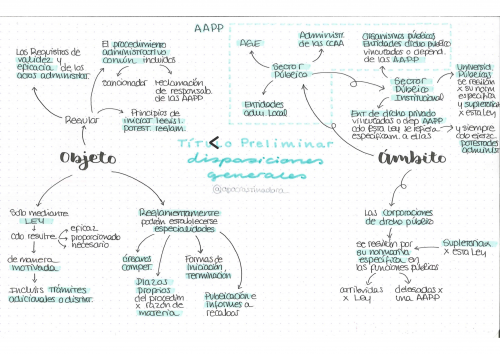 AAPP
Los Requisitos de
validez y
eficacia de los
actos administr.
El procedimiento
administrativo
común incluidos
sancionador
reclamación
de responsab.
de las AAPP
Regular
Principios de
iniciar legisl.
potest. reglam.
Objeto
Solo mediante
LEY
cdo resulte
eficaz
proporcionado
necesario
de manera
motivada
Incluirs trámites
adicionales o distint.
Reglamentariamente
podrán establecerse
especialidades
órganos
compet.
Plazos
propios
del procedim
x razón de
materia
Formas de
iniciación
terminación
Publicación e
informes a
recabar
Título Preliminar
disposiciones
generales
AGE
Administr.
de las CCAA
Sector
Público
Entidades
adm. Local
Organismos públicos
Entidades dicho público
vinculados o depend.
de las AAPP
Sector
Público
Institucional
Universid.
Públicas
se regirán
x su norm
específica
y supletoria
x esta Ley
Ent de dicho privado
vinculados o dep AAPP
cdo Esta Ley se refiera
específicam. a ellas
y siempre
cdo ejerzc.
potestades
administ.
Ámbito
Las Corporaciones
de dicho público
se regirán por
su normativa
específica en
las funciones públicas
Supletoria
x esta Ley
atribuidas
x Ley
delegadas x
una AAPP